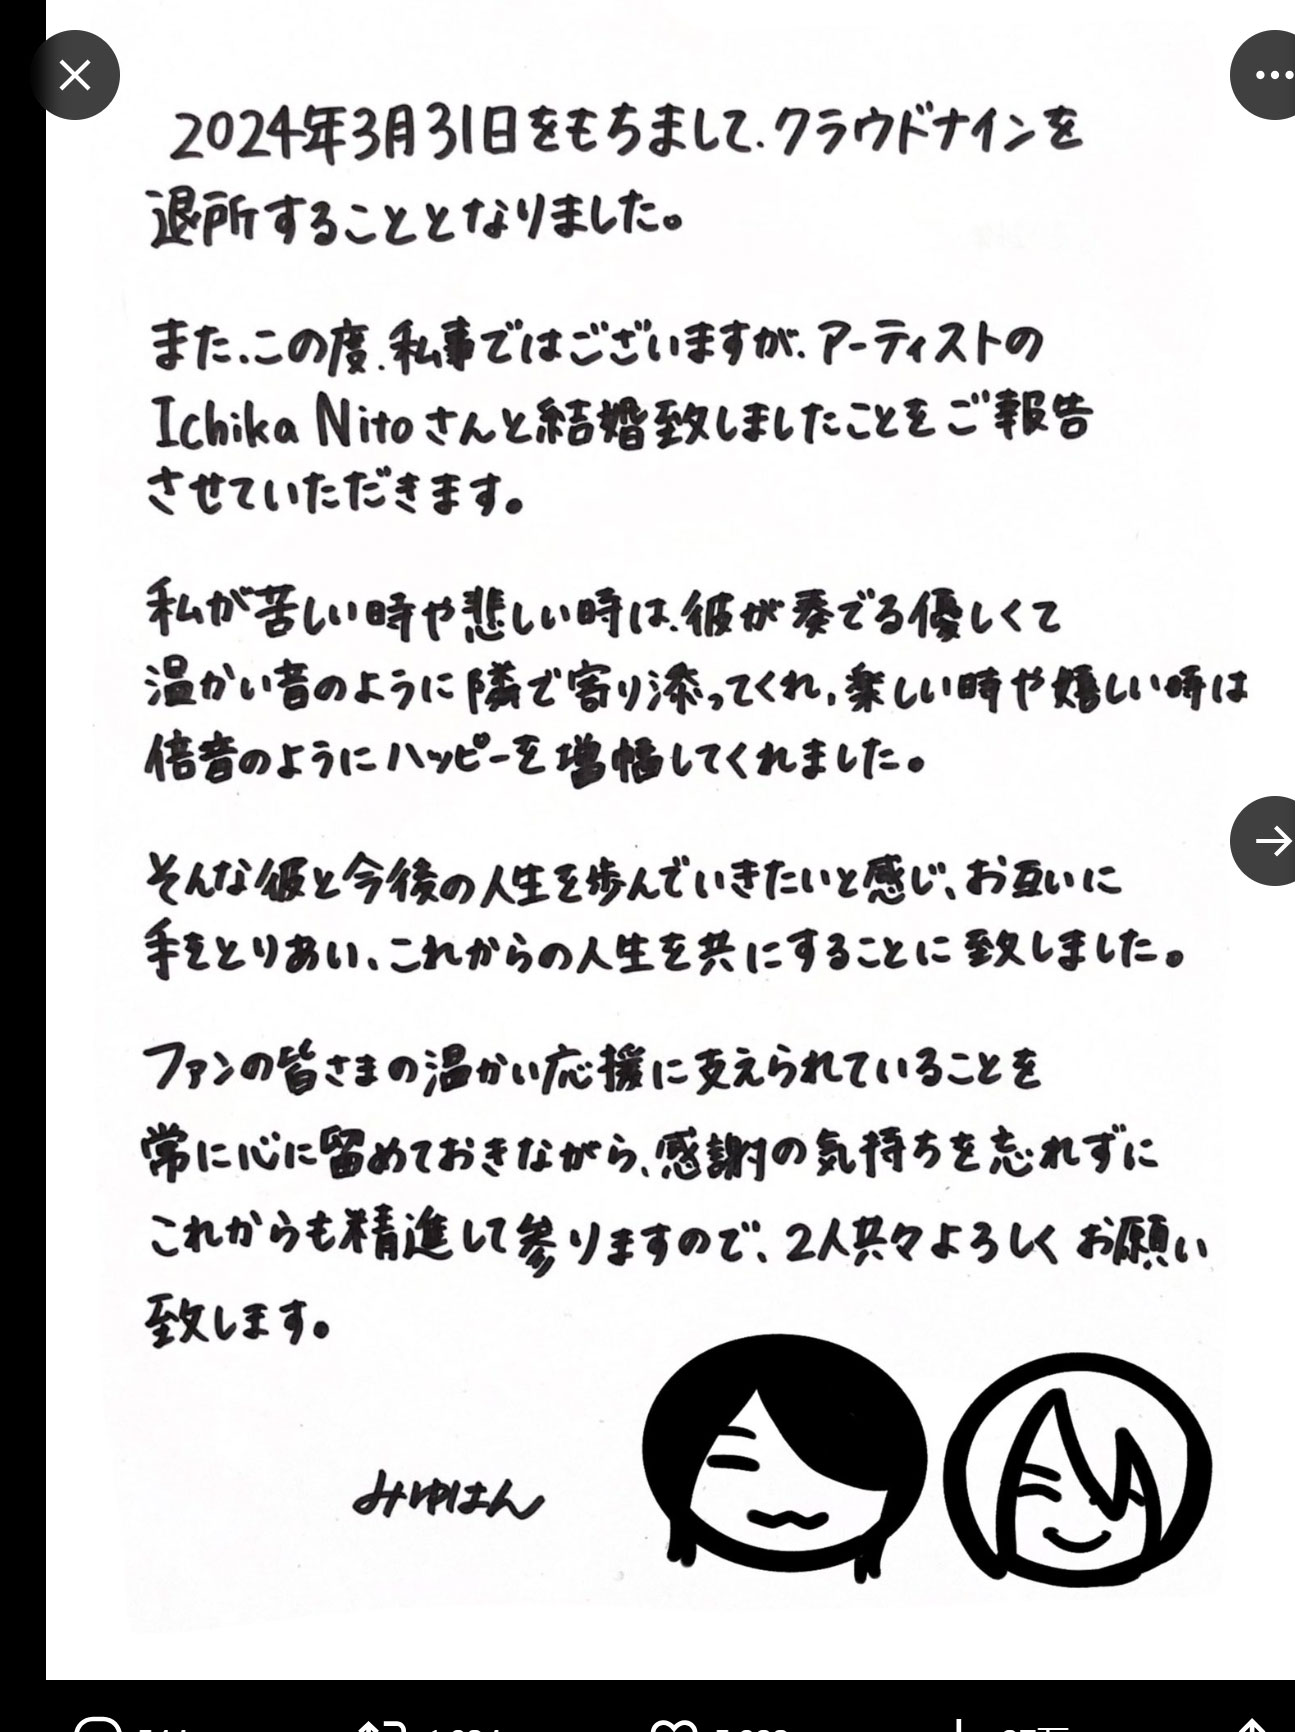 2024年3月31日をもちまして、クラウドナインを
退所することとなりました。
また、この度、私事ではございますが、アーティストの
Ichika Nitoさんと結婚致しましたことをご報告
させていただきます。
私が苦しい時や悲しい時は、彼が奏でる優しくて
温かい音のように隣で寄り添ってくれ、楽しい時や嬉しい時は
倍音のようにハッピーを増幅してくれました。
そんな彼と今後の人生を歩んでいきたいと感じ、お互いに
手をとりあい、これからの人生を共にすることに致しました。
ファンの皆さまの温かい応援に支えられていることを
常に心に留めておきながら、感謝の気持ちを忘れずに
これからも精進して参りますので、2人共々よろしくお願い
致します。
みゆはん